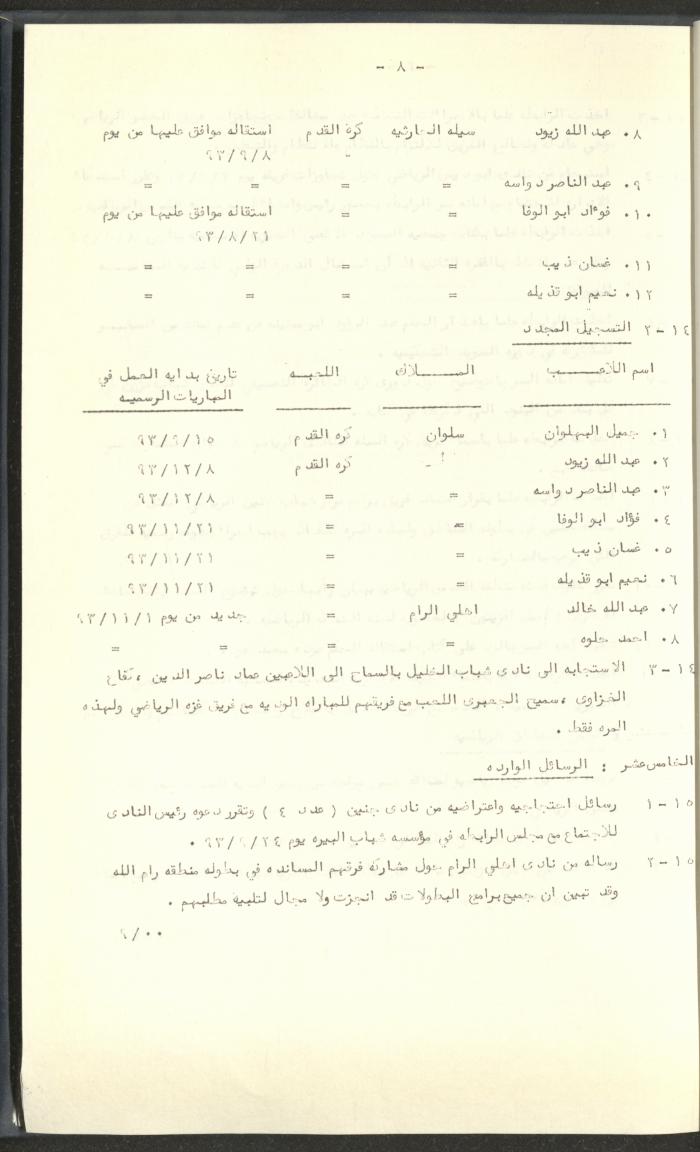 - ٨ -
٨٠ عبد الله زيود سيله الحارثيه كرة القدم استقاله موافق عليها من يوم
٩٣/٩/٨
٩٠ عبد الناصر دواسه = = = =
١٠٠ فوءاد ابو الوفا = = استقاله موافق عليها من يوم
٩٣/٨/٢١
١١٠ غسان ذيب = = = =
١٢٠ نعيم ابو قذيله = = = =
١٤-٢ التسجيل المجدد
اسم اللاعب الملاك اللعبه تاريخ بدايه العمل في
المباريات الرسميه
١٠ جميل البهلوان سلوان كره القدم ٩٣/٩/١٥
٢٠ عبد الله زيود كره القدم ٩٣/١٢/٨
٣٠ عبد الناصر دواسه = = ٩٣/١٢/٨
٤٠ فؤاد ابو الوفا = = ٩٣/١١/٢١
٥٠ غسان ذيب = = ٩٣/١١/٢١
٦٠ نعيم ابو قذيله = = ٩٣/١١/٢١
٧٠ عبد الله خالد اهلي الرام = جديد من يوم ٩٣/١١/١
٨٠ احمد حلوه = = = =
١٤-٣ الاستجابه الى نادى شباب الخليل بالسماح الى اللاعبين عماد ناصر الدين ،
الغزاوى ، سميح الجعبرى اللعب مع فريقهم للمباراه الوديه مع فريق غزه الرياضي ولهذه
المره فقط .
الخامس عشر : الرسائل الوارده
١٥-١ رسائل احتجاجيه واعتراضيه من نادى جنين ( عدد ٤ ) وتقرر دعوه رئيس النادى
للاجتماع مع مجلس الرابطه في مؤسسه شباب البيره يوم ٩٣/٩/٢٤ .
١٥-٢ رساله من نادى اهلي الرام حول مشاركة فرقتهم المسانده في بطوله منطقه رام الله
وقد تبين ان جميع برامج البطولات قد انجزت ولا مجال لتلبية مطلبهم .
٩/٠٠